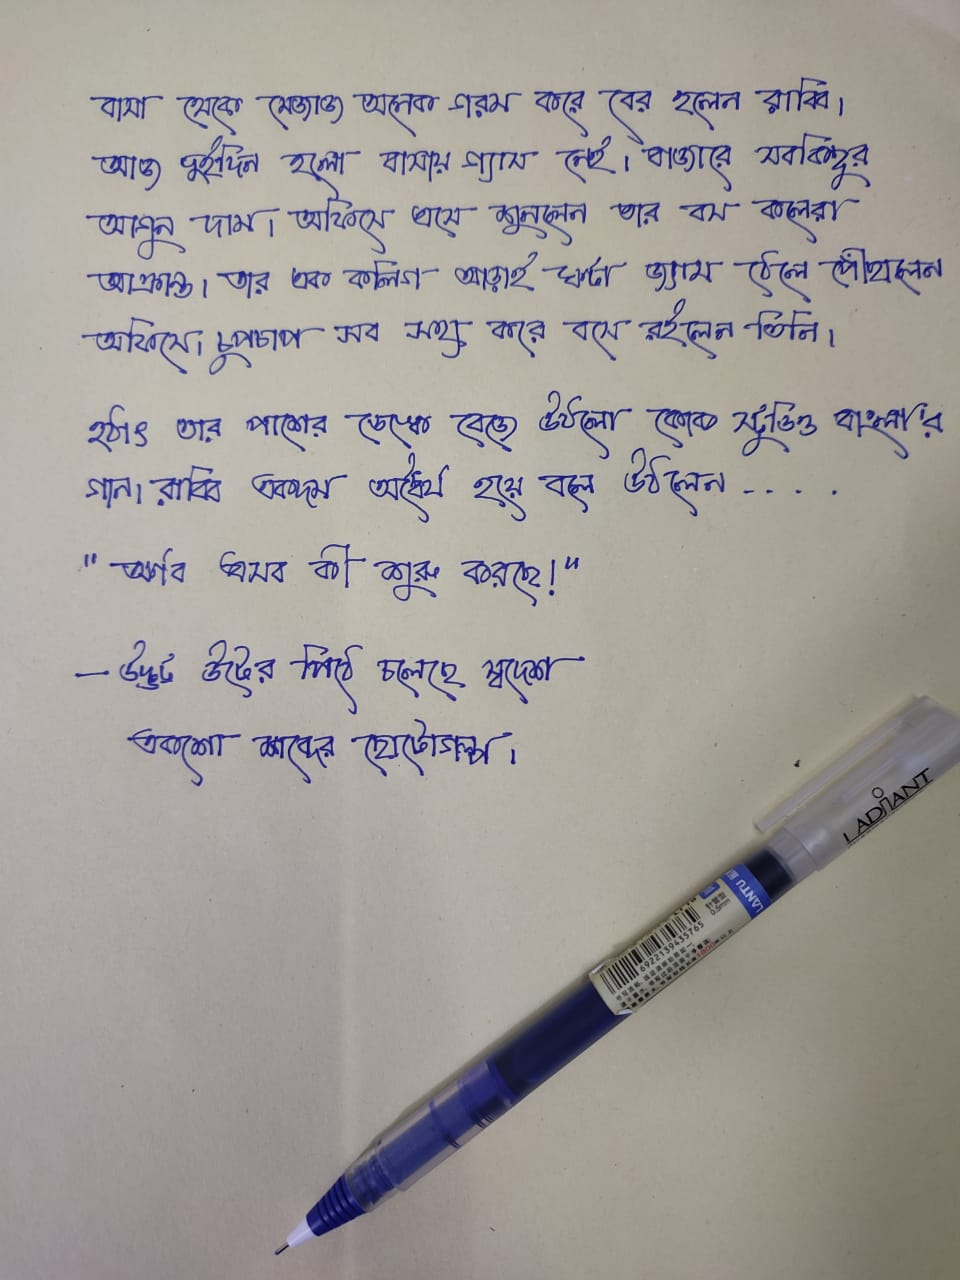 বাসা থেকে মেজাজ অনেক গরম করে বের হলেন রাব্বি।
আজ দুইদিন হলো বাসায় গ্যাস নেই। বাজারে সবকিছুর
আগুন দাম। অফিসে এসে শুনলেন তার বস কলেরা
আক্রান্ত। তার এক কলিগ আড়াই ঘন্টা জ্যাম ঠেলে পৌঁছালেন
অফিসে। চুপচাপ সব সহ্য করে বসে রইলেন তিনি।
হঠাৎ তার পাশের ডেস্কে বেজে উঠলো কোক স্টুডিও বাংলা'র
গান। রাব্বি একদম অধৈর্য হয়ে বলে উঠলেন ....
"অর্ণব এসব কী শুরু করছে!"
– উদ্ভট উটের পিঠে চলেছে স্বদেশ
একশো শব্দের ছোটোগল্প।
LADIIANT
LANTU
0.5mm
6922139435765